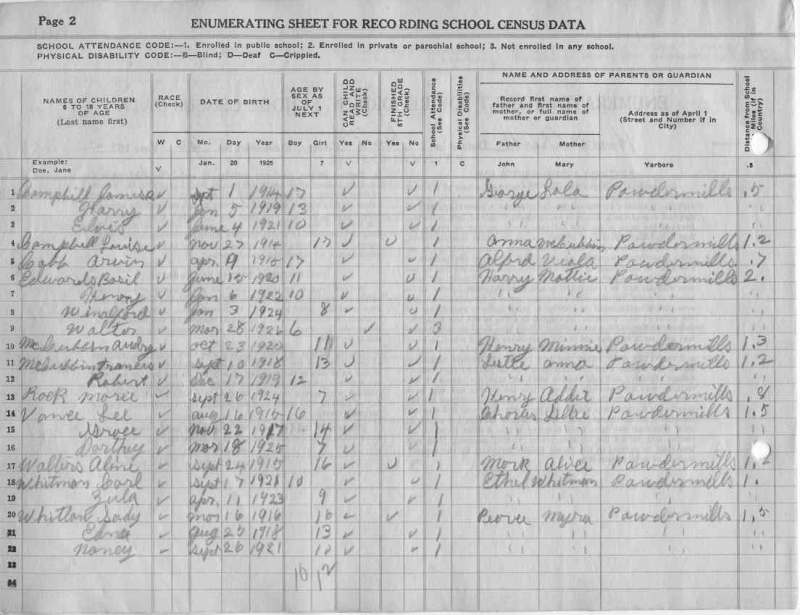 Page 2
ENUMERATING SHEET FOR RECORDING SCHOOL CENSUS DATA
SCHOOL ATTENDANCE CODE:—1. Enrolled in public school; 2. Enrolled in private or parochial school; 3. Not enrolled in any school.
PHYSICAL DISABILITY CODE:—B—Blind; D—Deaf C—Crippled.
NAMES OF CHILDREN 6 TO 18 YEARS OF AGE (Last name first)
RACE (Check)
DATE OF BIRTH
AGE BY SEX AS OF JULY 1 NEXT
CAN CHILD READ AND WRITE (Check)
FINISHED 8TH GRADE (Check)
School Attendance (See Code)
Physical Disabilities (See Code)
NAME AND ADDRESS OF PARENTS OR GUARDIAN
Record first name of father and first name of mother, or full name of mother or guardian
Address as of April 1 (Street and Number if in City)
Distance from School Miles (if in Country)
W C Mo. Day Year Boy Girl Yes No Yes No Father Mother
Example: Doe, Jane V Jan. 20 1925 7 V V 1 C John Mary Yarboro .5
1 Campbell ✓ 1 17 ✓ ✓ 1 George Lola Powdermills .5
2 Harry ✓ Jan 5 1919 13 ✓ ✓ 1 " " " "
3 Elvis ✓ June 4 1921 10 ✓ ✓ 1 " " " "
4 Campbell Louise ✓ Nov 27 1914 17 ✓ ✓ 1 Anna Powdermills 1.2
5 Cobb Arvin ✓ Apr 17 ✓ ✓ 1 Alford Viola Powdermills .7
6 Edwards Basil ✓ June 1920 11 ✓ ✓ 1 Harry Mattie Powdermills 2.
7 Henry ✓ Jan 6 1922 10 ✓ ✓ 1 " " " "
8 Winiford ✓ Jan 3 1924 8 ✓ ✓ 1 " " " "
9 Walter ✓ Mar 28 1926 6 ✓ ✓ 3 " " " "
10 ✓ Oct 23 11 ✓ ✓ 1 Henry Minnie Powdermills 1.3
11 Francis ✓ Sept 10 1918 13 ✓ ✓ 1 Anna Powdermills 1.2
12 Robert ✓ Dec 17 1919 12 ✓ ✓ 1 " " " "
13 Rock ✓ Sept 26 1924 7 ✓ ✓ 1 Henry Addie Powdermills .8
14 Vance Lee ✓ Aug 16 1915 16 ✓ ✓ 1 Charles Powdermills 1.5
15 Grace ✓ Nov 22 1917 14 ✓ ✓ 1 " " " "
16 Dorthey ✓ Mar 18 1925 7 ✓ ✓ 1 " " " "
17 Walters ✓ Sept 24 1915 16 ✓ ✓ 1 Mark Alice Powdermills
18 Whitman Carl ✓ Sept 17 1921 10 ✓ ✓ 1 Ethel Whitman Powdermills 1.
19 Zula ✓ Apr. 11 1923 9 ✓ ✓ 1 " " " "
20 Sady ✓ Mar 16 1916 16 ✓ ✓ 1 Powdermills 1.5
21 ✓ Aug 25 1918 13 ✓ ✓ 1 " " " "
22 Nancy ✓ Sept 26 1921 10 ✓ ✓ 1 " " " "
23
24 10 12